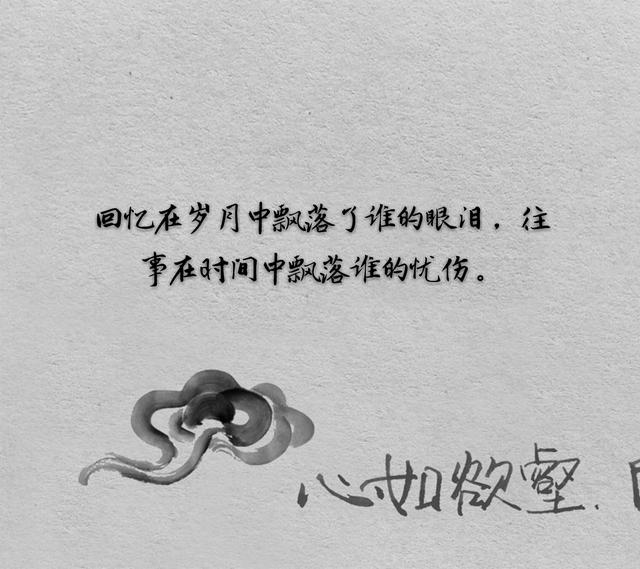 回忆在岁月中飘落了谁的眼泪，往
事在时间中飘落谁的忧伤。
心如欲壑.